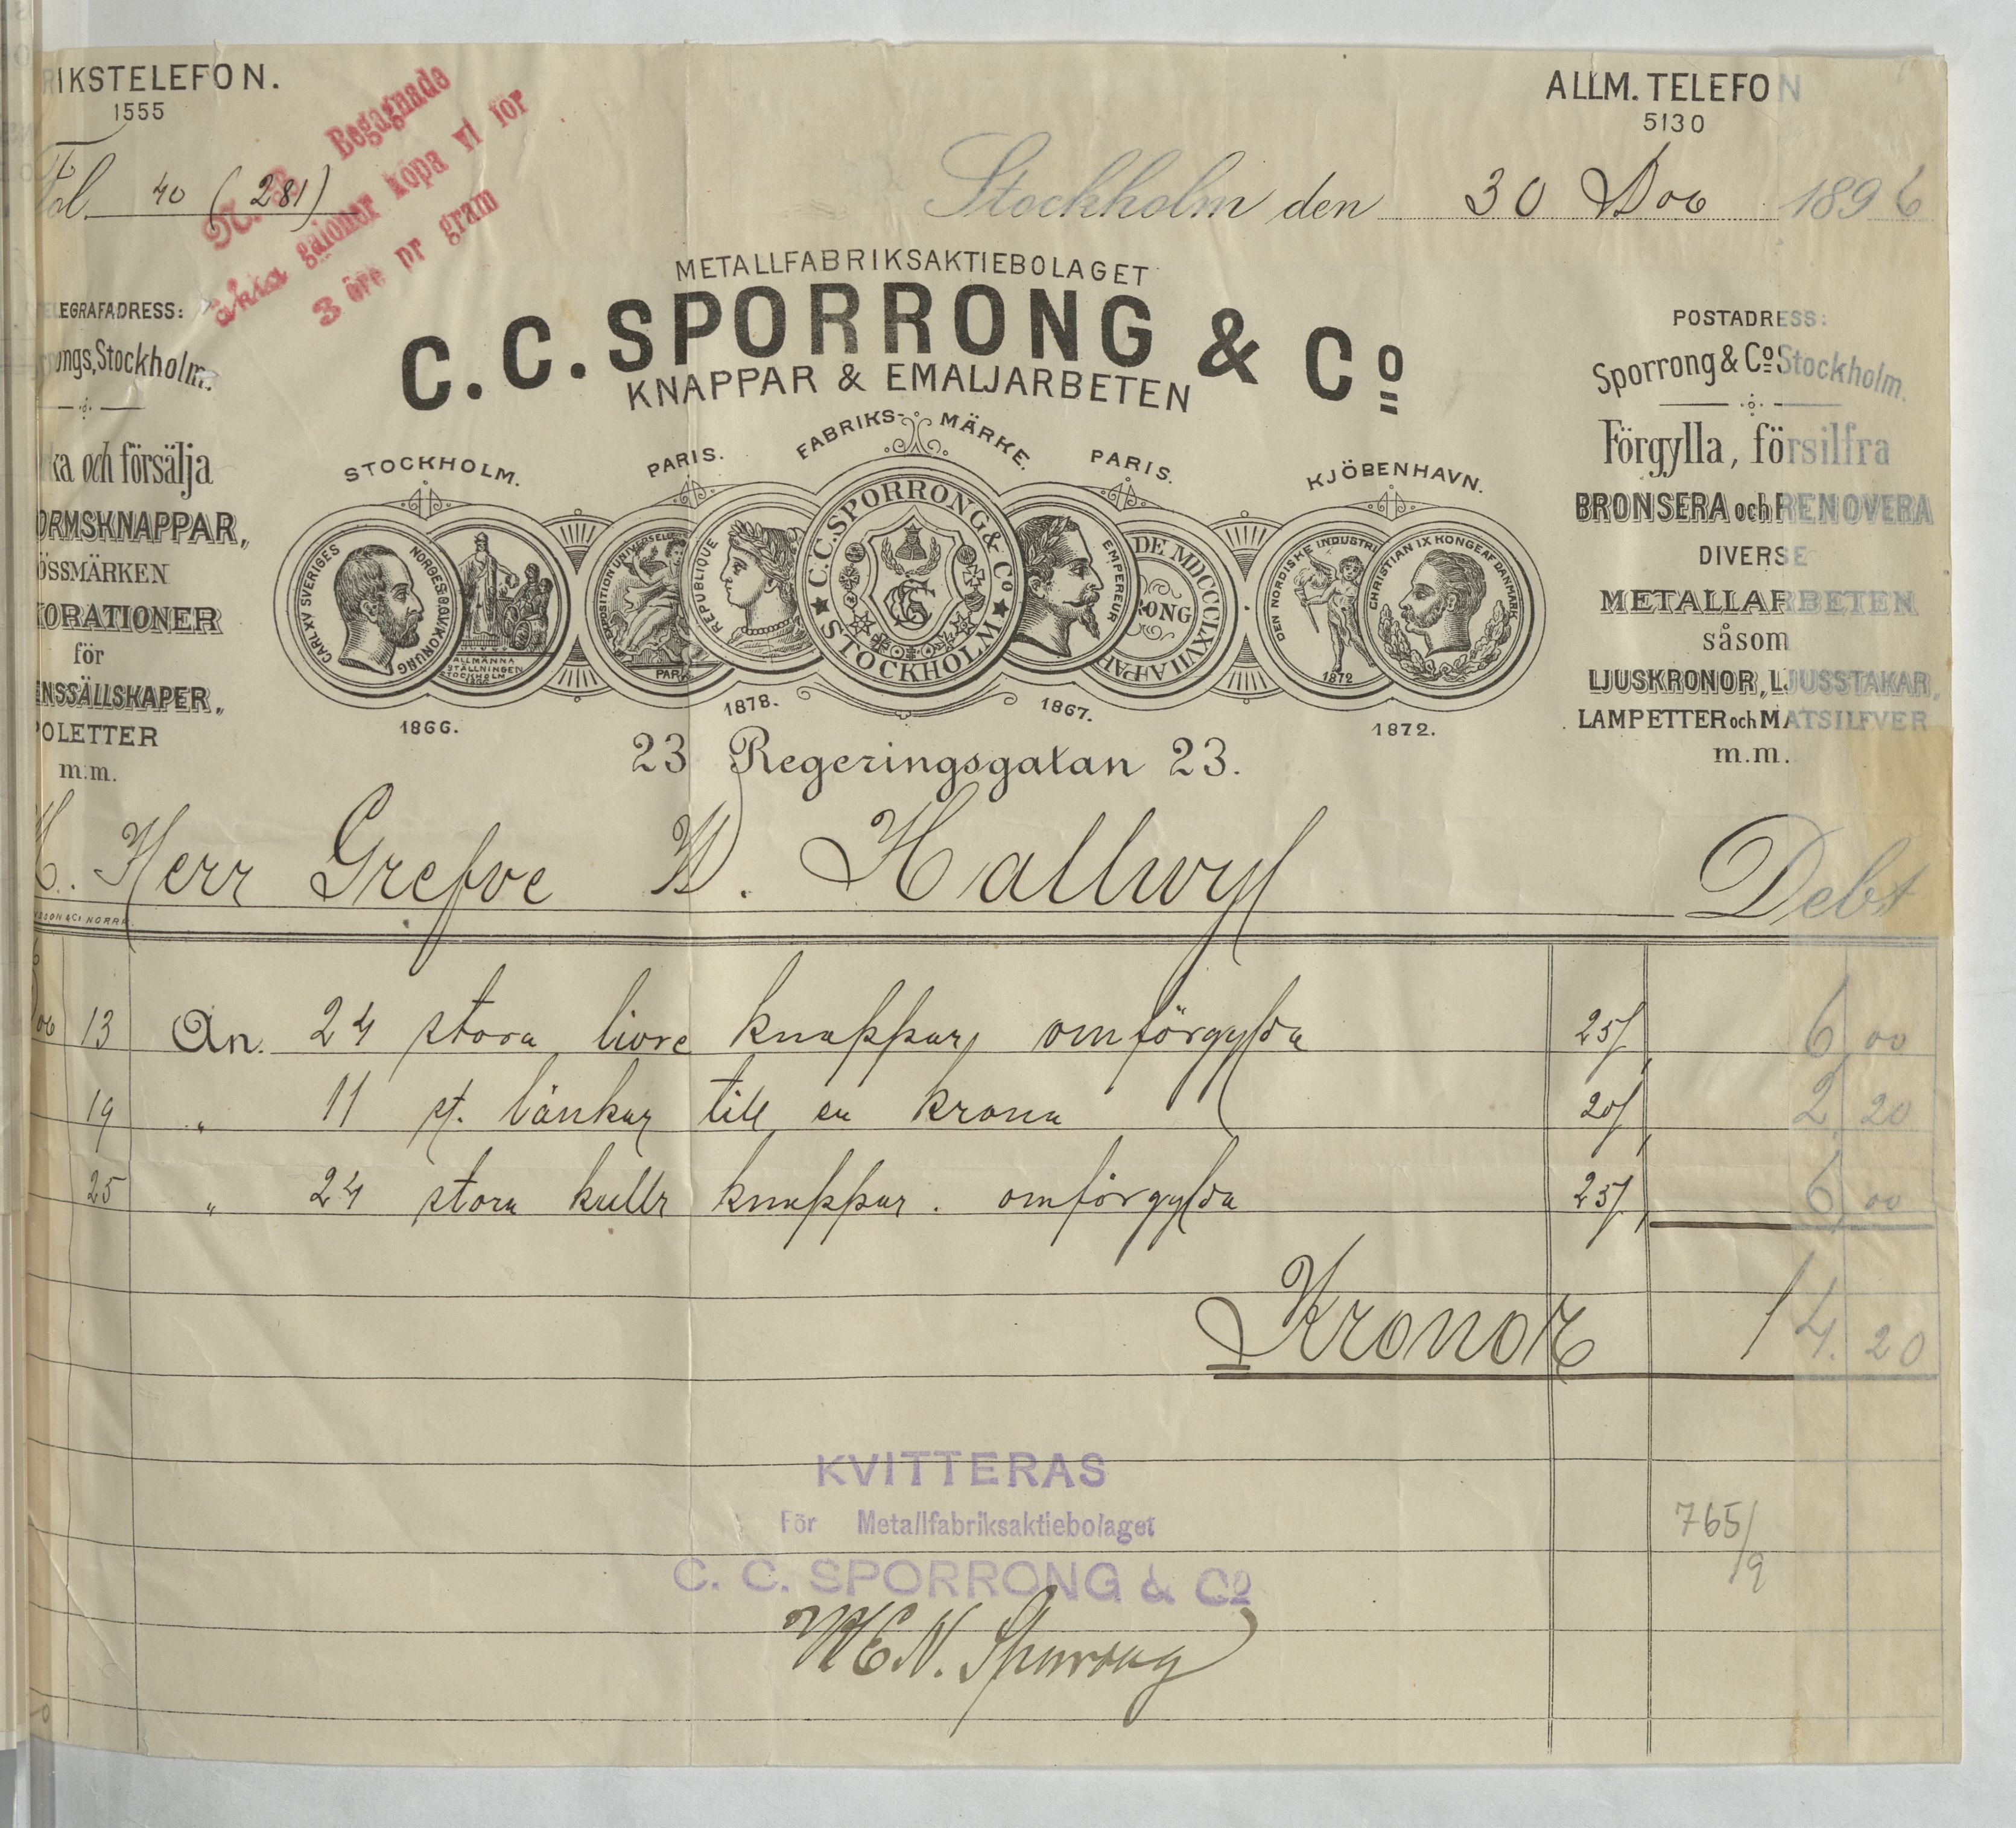 RIKSTELEFON.
1555
ALLM. TELEFON
5130
Fol. 40 (281)
N. B. Begagnade
äkta galoner köpa vi för
3 öre pr gram
Stockholm den 30 Dec 1896
METALLFABRIKSAKTIEBOLAGET
C.C. SPORRONG & Co
KNAPPAR & EMALJARBETEN
FABRIKS-MÄRKE.
ELEGRAFADRESS:
ongs, Stockholm.
ka och försälja
ORMSKNAPPAR,
ÖSSMÄRKEN
KORATIONER
för
ENSSÄLLSKAPER,
POLETTER
m.m.
STOCKHOLM.
CARL XV SVERIGES NORGES G.O.V. KONUNG
ALLMÄNNA
STÄLLNINGEN
STOCKHOLM
1866
1866.
PARIS.
EXPOSITION UNIVERSELLE
PARIS
REPUBLIQUE
1878.
C.C. SPORRONG & Co
STOCKHOLM
PARIS.
EMPEREUR
DE MDCCCLXVII A PAR
RONG
1867.
KJÖBENHAVN.
DEN NORDISKE INDUSTRI
1872
CHRISTIAN IX KONGE AF DANMARK
1872.
POSTADRESS:
Sporrong & Co Stockholm.
Förgylla, försilfra
BRONSERA och RENOVERA
DIVERSE
METALLARBETEN
såsom
LJUSKRONOR, LJUSSTAKAR,
LAMPETTER och MATSILFVER
m.m.
23 Regeringsgatan 23.
H. Herr Grefve W. Hallwyl Debt
SSON & Co NORRK.
Dec 13 An. 24 stora livre knappar, omförgylda 25/ 6,00
19 " 11 st. länkar till en krona 20/ 2,20
25 " 24 stora kullr knappar. omförgylda 25/ 6,00
Kronor 14.20
KVITTERAS
För Metallfabriksaktiebolaget
C. C. SPORRONG & Co
765/9
M E N. Sporrong